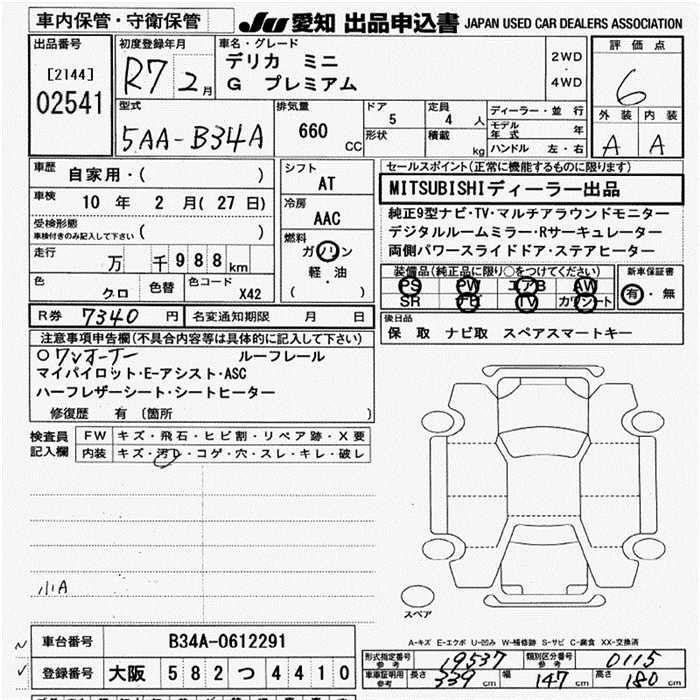 車内保管・守衛保管
JU 愛知 出品申込書 JAPAN USED CAR DEALERS ASSOCIATION
出品番号
[2144]
02541
初度登録年月
R7 2月
車名・グレード
デリカ ミニ
G プレミアム
2WD
・
4WD
評価点
6
外装 内装
A A
型式
5AA-B34A
排気量
660
CC
ドア
5
定員
4 人
形状
積載
kg
ディーラー・並行
モデル年式 年
ハンドル 左・右
車歴
自家用・( )
車検
10 年 2 月(27日)
受検形態
車検付きのみ記入して下さい ( )
走行
万 千988km
色
クロ
色替
色コード
X42
シフト
AT
冷房
AAC
燃料
ガソリン
軽・油
( )
セールスポイント(正常に機能するものに限ります)
MITSUBISHIディーラー出品
純正9型ナビ・TV・マルチアラウンドモニター
デジタルルームミラー・Rサーキュレーター
両側パワースライドドア・ステアヒーター
装備品(純正品に限り○をつけてください)
PS PW エアB AW
SR ナビ TV カワシート
新車保証書
有・無
R券 7340 円
名変通知期限 月 日
後日品
保 取 ナビ取 スペアスマートキー
注意事項申告欄(不具合内容等は具体的に記入して下さい)
○ワンオーナー ルーフレール
マイパイロット・E-アシスト・ASC
ハーフレザーシート・シートヒーター
修復歴 有 (箇所 )
検査員記入欄
FW キズ・飛石・ヒビ割・リペア跡・X要
内装 キズ・汚レ・コゲ・穴・スレ・キレ・破レ
小A
スペア
A-キズ E-エクボ U-凹み W-補修跡 S-サビ C-腐食 XX-交換済
車台番号 B34A-0612291
登録番号 大阪 582 つ 4410
形式指定番号 参考 19537
類別区分番号 参考 0115
車庫証明用参考 長さ 339 cm 幅 147 cm 高さ 180 cm